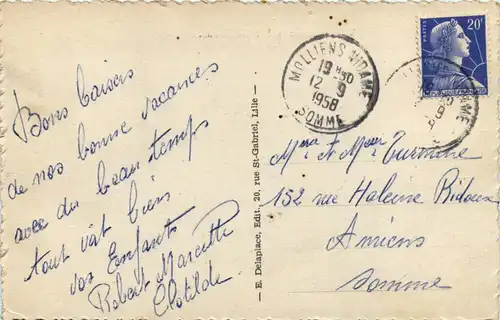 Bons baisers
de nos bonne vacances
avec du beau temps
tout vat bien
vos Enfants
Robert Marcelle
Clotilde
— E. Delaplace, Edit., 20, rue St-Gabriel, Lille —
MOLLIENS-VIDAME
19 H30
12 - 9
1958
SOMME
POSTES
20F
Mera et Meur Turmine
152 rue
Amiens
Somme